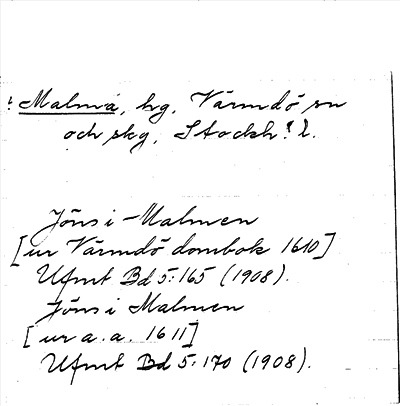 ! Malma, hg, Värmdö sn
och skg, Stockh: l.
Jöns i Malmen
[ur Värmdö dombok 1610]
Ufmt Bd 5:165 (1908).
Jöns i Malmen
[ur a.a. 1611]
Ufmt Bd 5:170 (1908).